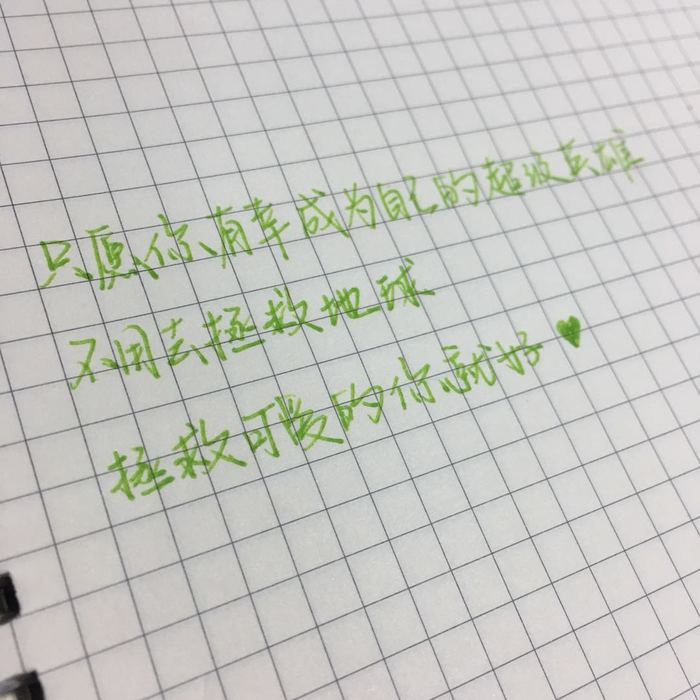 只愿你有幸成为自己的超级英雄
不用去拯救地球
拯救可爱的你就好♥